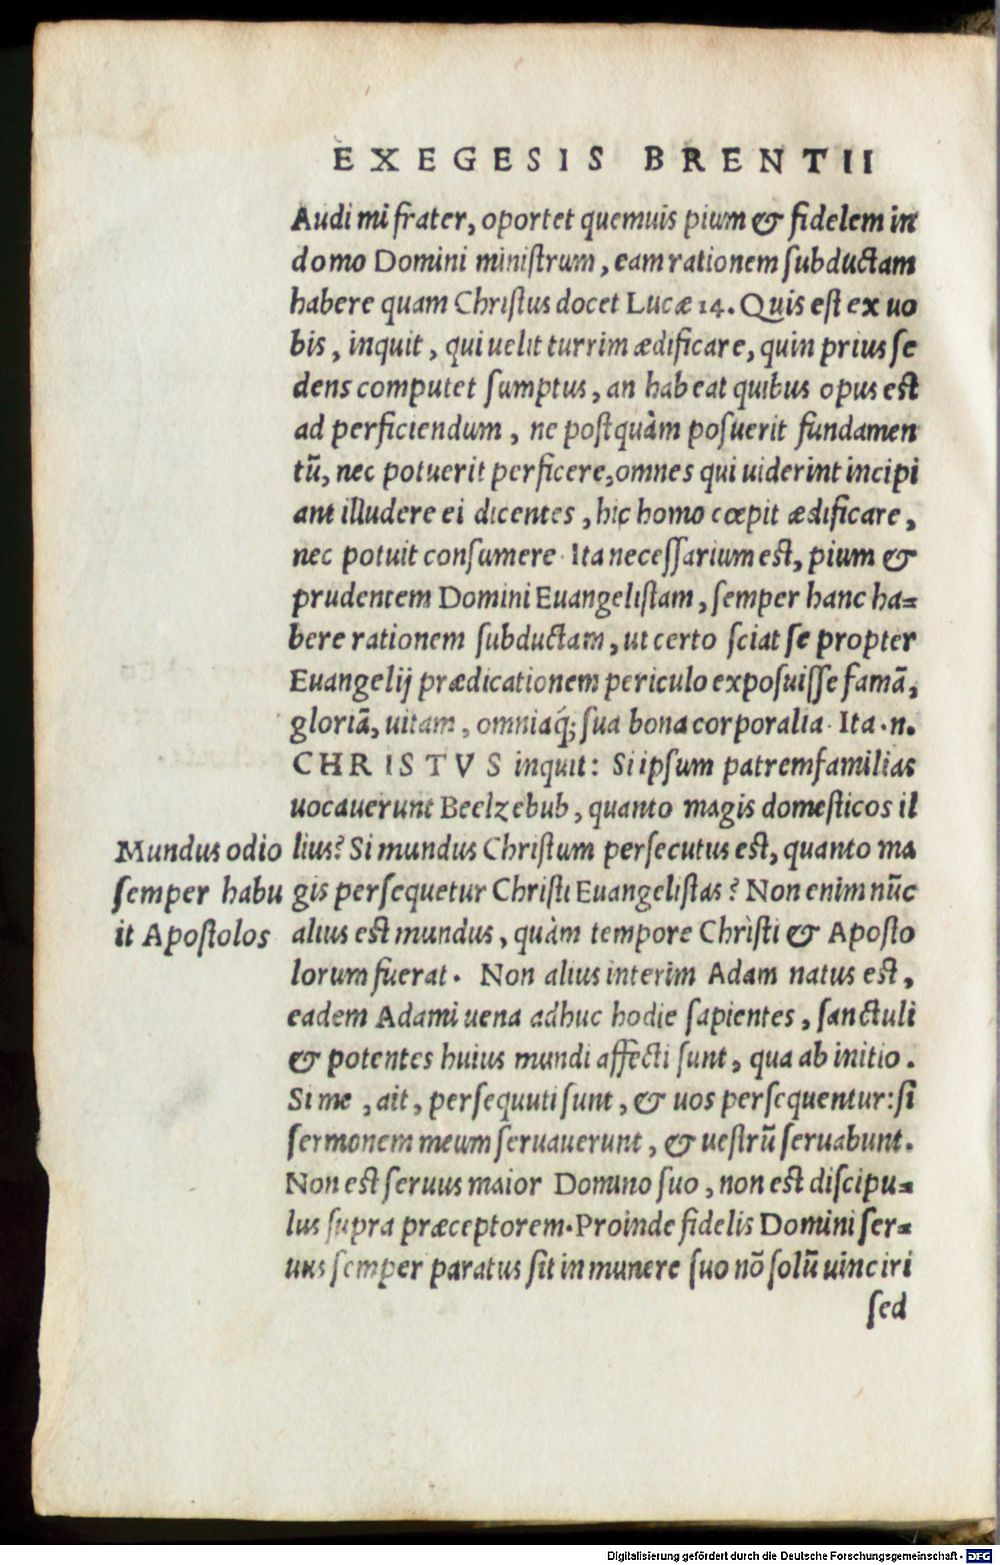 EXEGESIS BRENTII
Audi mi frater, oportet quemuis pium & fidelem in
domo Domini ministrum, eam rationem subductam
habere quam Christus docet Lucæ 14. Quis est ex uo
bis, inquit, qui uelit turrim ædificare, quin prius se
dens computet sumptus, an habeat quibus opus est
ad perficiendum, ne postquàm posuerit fundamen
tũ, nec potuerit perficere, omnes qui uiderint incipi
ant illudere ei dicentes, hic homo cœpit ædificare,
nec potuit consumere. Ita necessarium est, pium &
prudentem Domini Euangelistam, semper hanc ha=
bere rationem subductam, ut certo sciat se propter
Euangelij prædicationem periculo exposuisse famã,
gloriã, uitam, omniaq́; sua bona corporalia. Ita .n.
CHRISTVS inquit: Si ipsum patremfamilias
uocauerunt Beelzebub, quanto magis domesticos il
Mundus odio
semper habu
it Apostolos
lius? Si mundus Christum persecutus est, quanto ma
gis persequetur Christi Euangelistas? Non enim nũc
alius est mundus, quàm tempore Christi & Aposto
lorum fuerat. Non alius interim Adam natus est,
eadem Adami uena adhuc hodie sapientes, sanctuli
& potentes huius mundi affecti sunt, qua ab initio.
Si me, ait, persequuti sunt, & uos persequentur: si
sermonem meum seruauerunt, & uestrũ seruabunt.
Non est seruus maior Domino suo, non est discipu=
lus supra præceptorem. Proinde fidelis Domini ser=
uus semper paratus sit in munere suo nõ solũ uinciri
sed
Digitalisierung gefördert durch die Deutsche Forschungsgemeinschaft - DFG